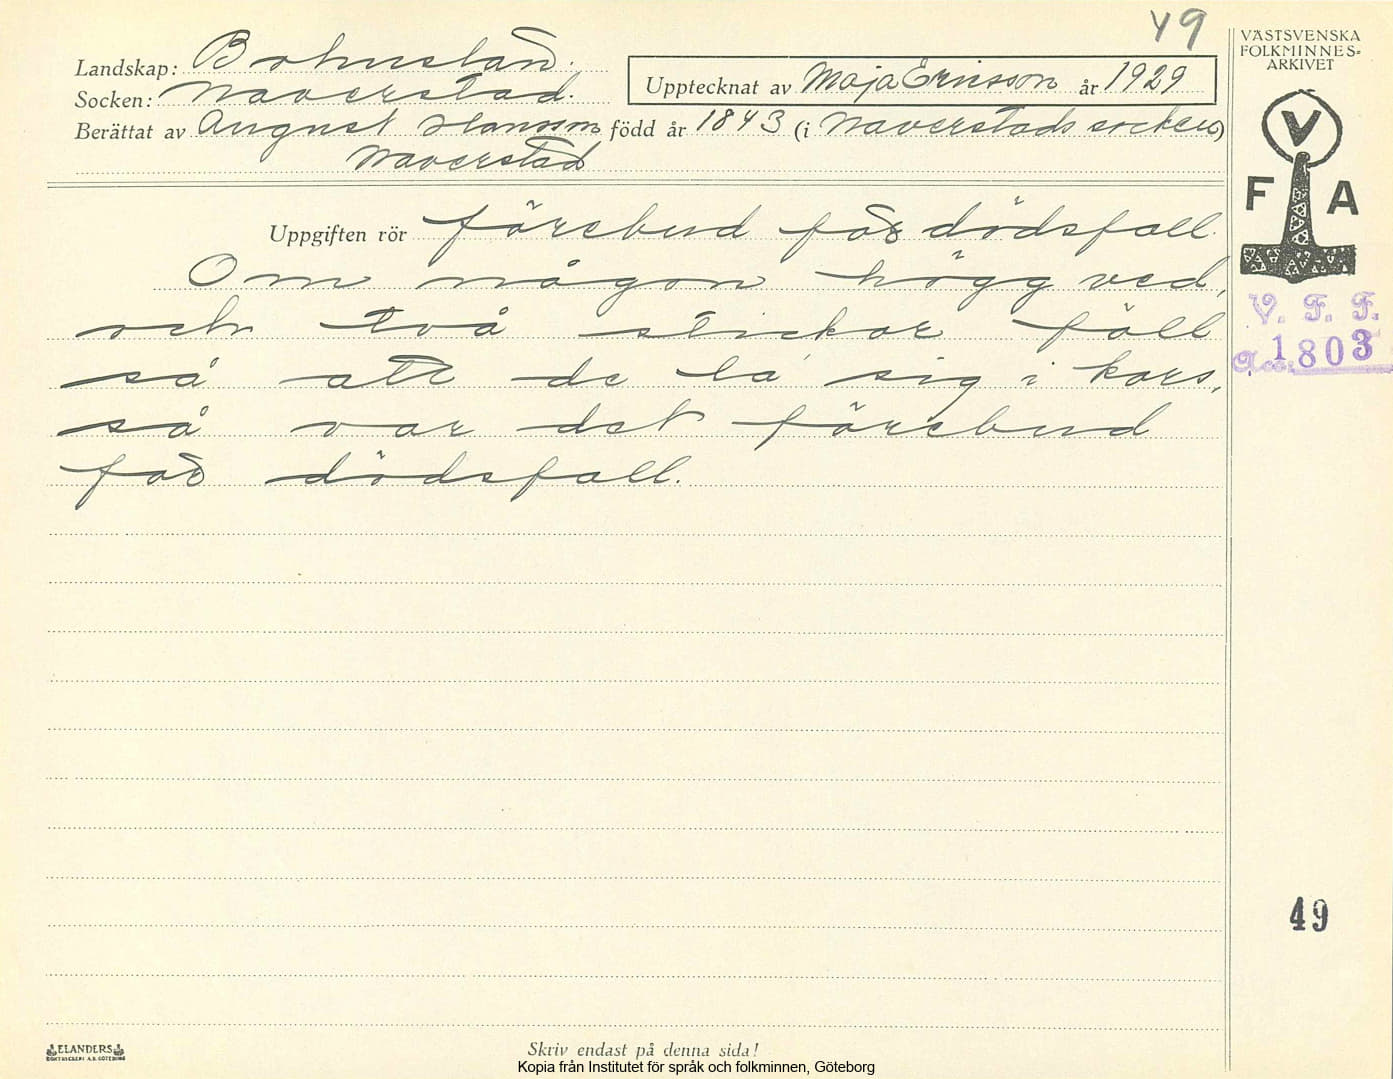 49
Landskap: Bohuslän.
Socken: Naverstad.
Upptecknat av Maja Ericsson år 1929
Berättat av August Hansson född år 1843 (i Naverstads socken)
Naverstad
Uppgiften rör förebud för dödsfall.
Om någon högg ved,
och två stickor föll
så att de la sig i kors,
så var det förebud
för dödsfall.
VÄSTSVENSKA
FOLKMINNES-
ARKIVET
V
F A
V. F. F.
Acc. 1803
49
ELANDERS
BOKTRYCKERI A.B. GÖTEBORG
Skriv endast på denna sida!
Kopia från Institutet för språk och folkminnen, Göteborg